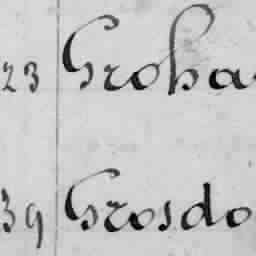 23 Groha
39 Grosdo